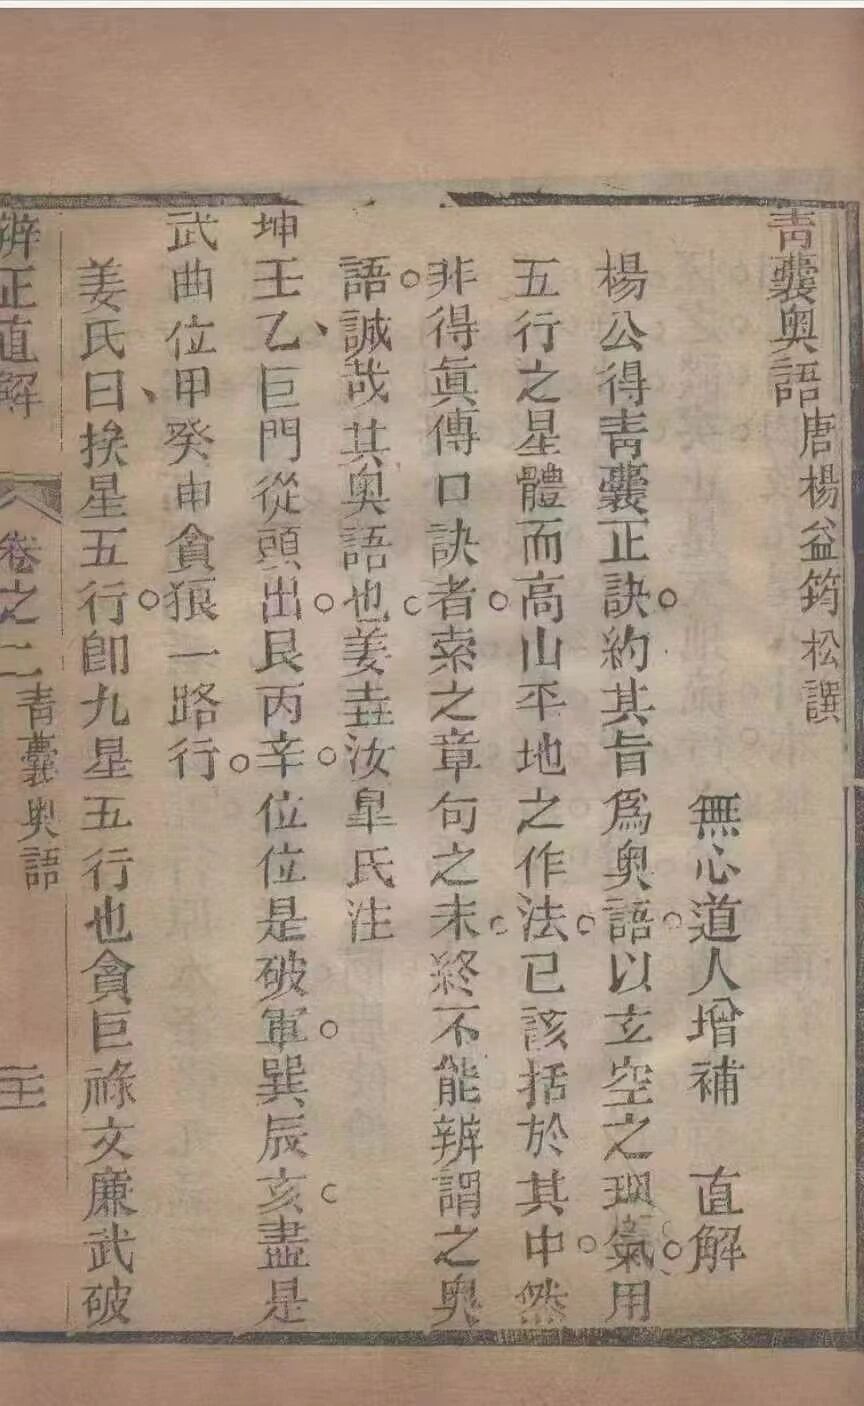 青囊奧語 唐楊益筠松譔
無心道人增補 直解
楊公得青囊正訣約其旨爲奧語以玄空之理氣用
五行之星體而高山平地之作法已該括於其中然
非得眞傳口訣者索之章句之末終不能辨謂之奧
語誠哉其奧語也姜垚汝臯氏注
坤壬乙巨門從頭出艮丙辛位位是破軍巽辰亥盡是
武曲位甲癸申貪狼一路行
姜氏曰挨星五行卽九星五行也貪巨祿文廉武破
辨正直解 卷之二 青囊奧語